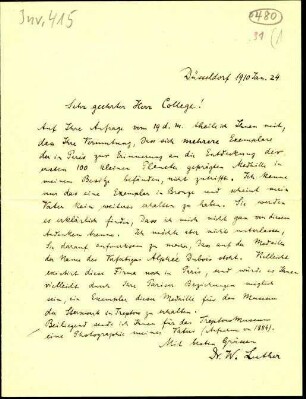 Inv. 415
480
31
Düsseldorf 1910 Jan. 24
Sehr geehrter Herr College!
Auf Ihre Anfrage vom 19 d. M. theile ich Ihnen mit,
dass Ihre Vermutung, dass sich mehrere Exemplare
der in Paris zur Erinnerung an die Entdeckung der
ersten 100 kleinen Planeten geprägten Medaille in
meinem Besitze befinden, nicht zutrifft. Ich kenne
nur das eine Exemplar in Bronze und scheint mein
Vater kein weiteres erhalten zu haben. Sie werden
es erklärlich finden, dass ich mich nicht gern von diesem
Andenken trenne. Ich möchte aber nicht unterlassen,
Sie darauf aufmerksam zu machen, dass auf der Medaille
der Name des Verfertigers Alphée Dubois steht. Vielleicht
existirt diese Firma noch in Paris, und wird es Ihnen
vielleicht durch Ihre Pariser Beziehungen möglich
sein, ein Exemplar dieser Medaille für das Museum
der Sternwarte in Treptow zu erhalten.
Beiliegend sende ich Ihnen für das Treptow-Museum
eine Photographie meines Vaters (Aufnahme von 1884).
Mit besten Grüssen
Dr. W. Luther